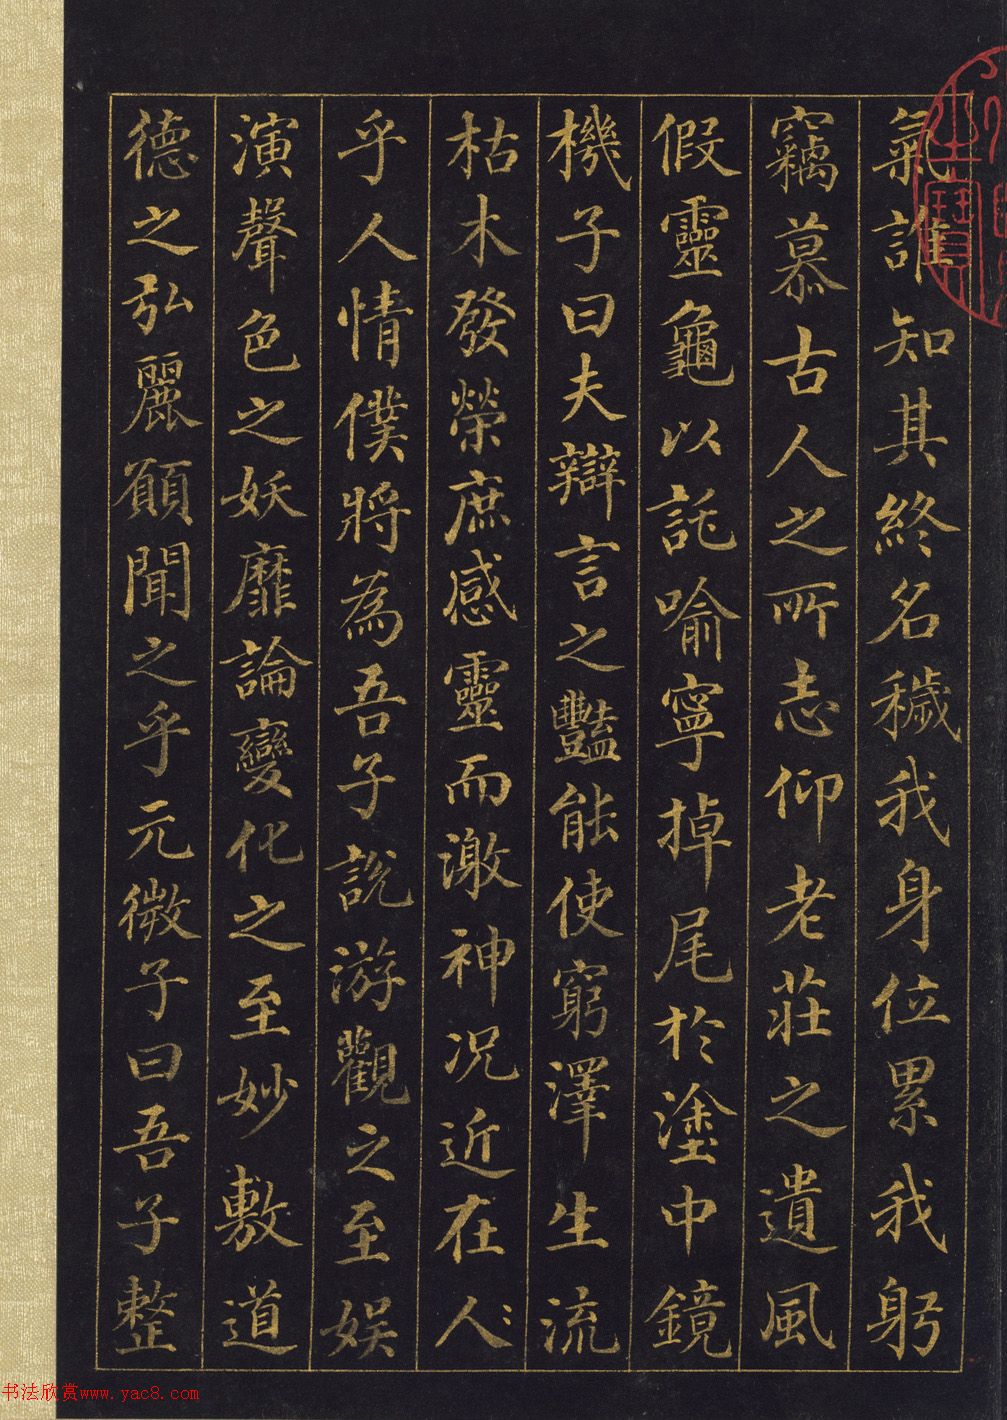 氣誰知其終名穢我身位累我躬
竊慕古人之所志仰老莊之遺風
假靈龜以託喻寧掉尾於塗中鏡
機子曰夫辯言之豔能使窮澤生流
枯木發榮庶感靈而激神況近在人
乎人情僕將為吾子說游觀之至娛
演聲色之妖靡論變化之至妙敷道
德之弘麗願聞之乎元微子曰吾子整
书法欣赏www.yac8.com